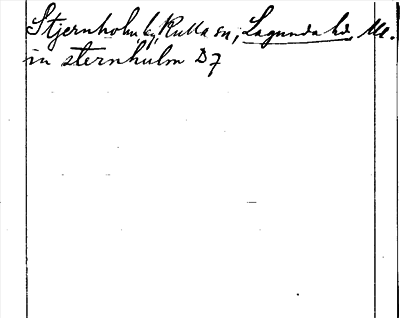 Stjernholm, by, Kulla sn, Lagunda hd, Ul.
in sternhulm D 7